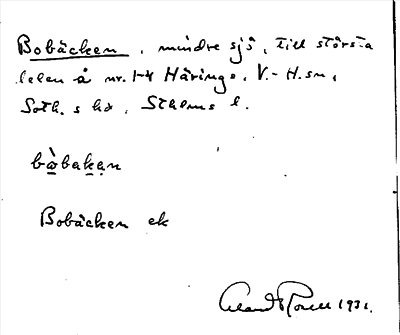 Bobäcken, mindre sjö, till största
delen å nr. 1-4 Häringe, V.-Hsn,
Soth. s hd, Sthlms l.
bɷ̀bakan
Bobäcken ek
1931.